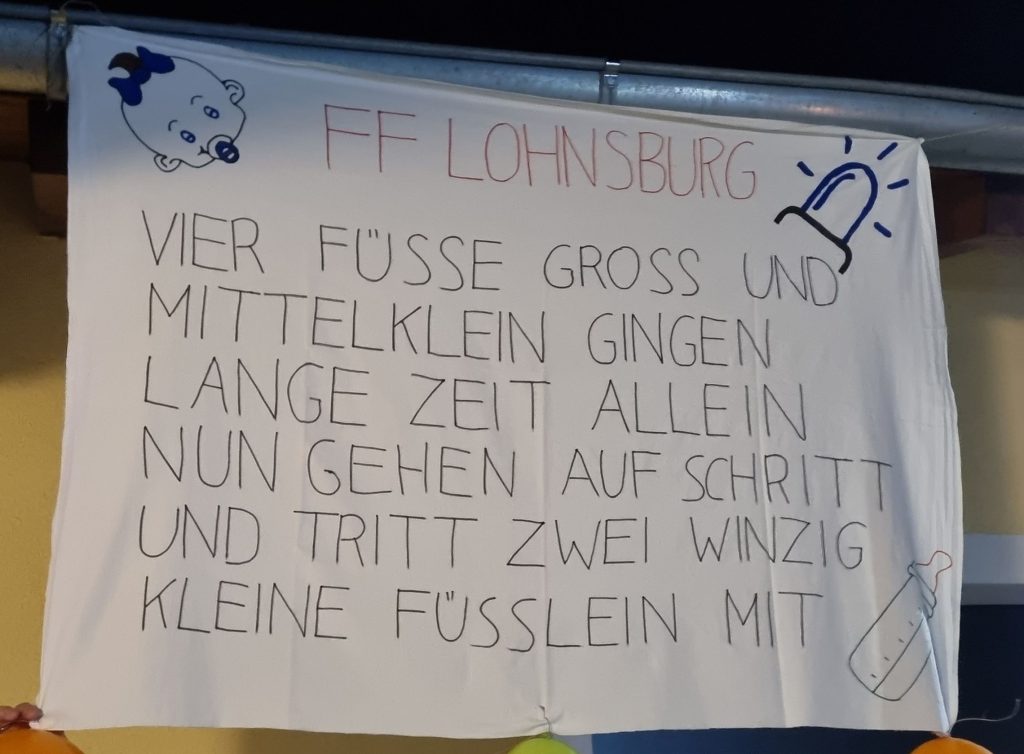 FF LOHNSBURG
VIER FÜSSE GROSS UND
MITTELKLEIN GINGEN
LANGE ZEIT ALLEIN
NUN GEHEN AUF SCHRITT
UND TRITT ZWEI WINZIG
KLEINE FÜSSLEIN MIT